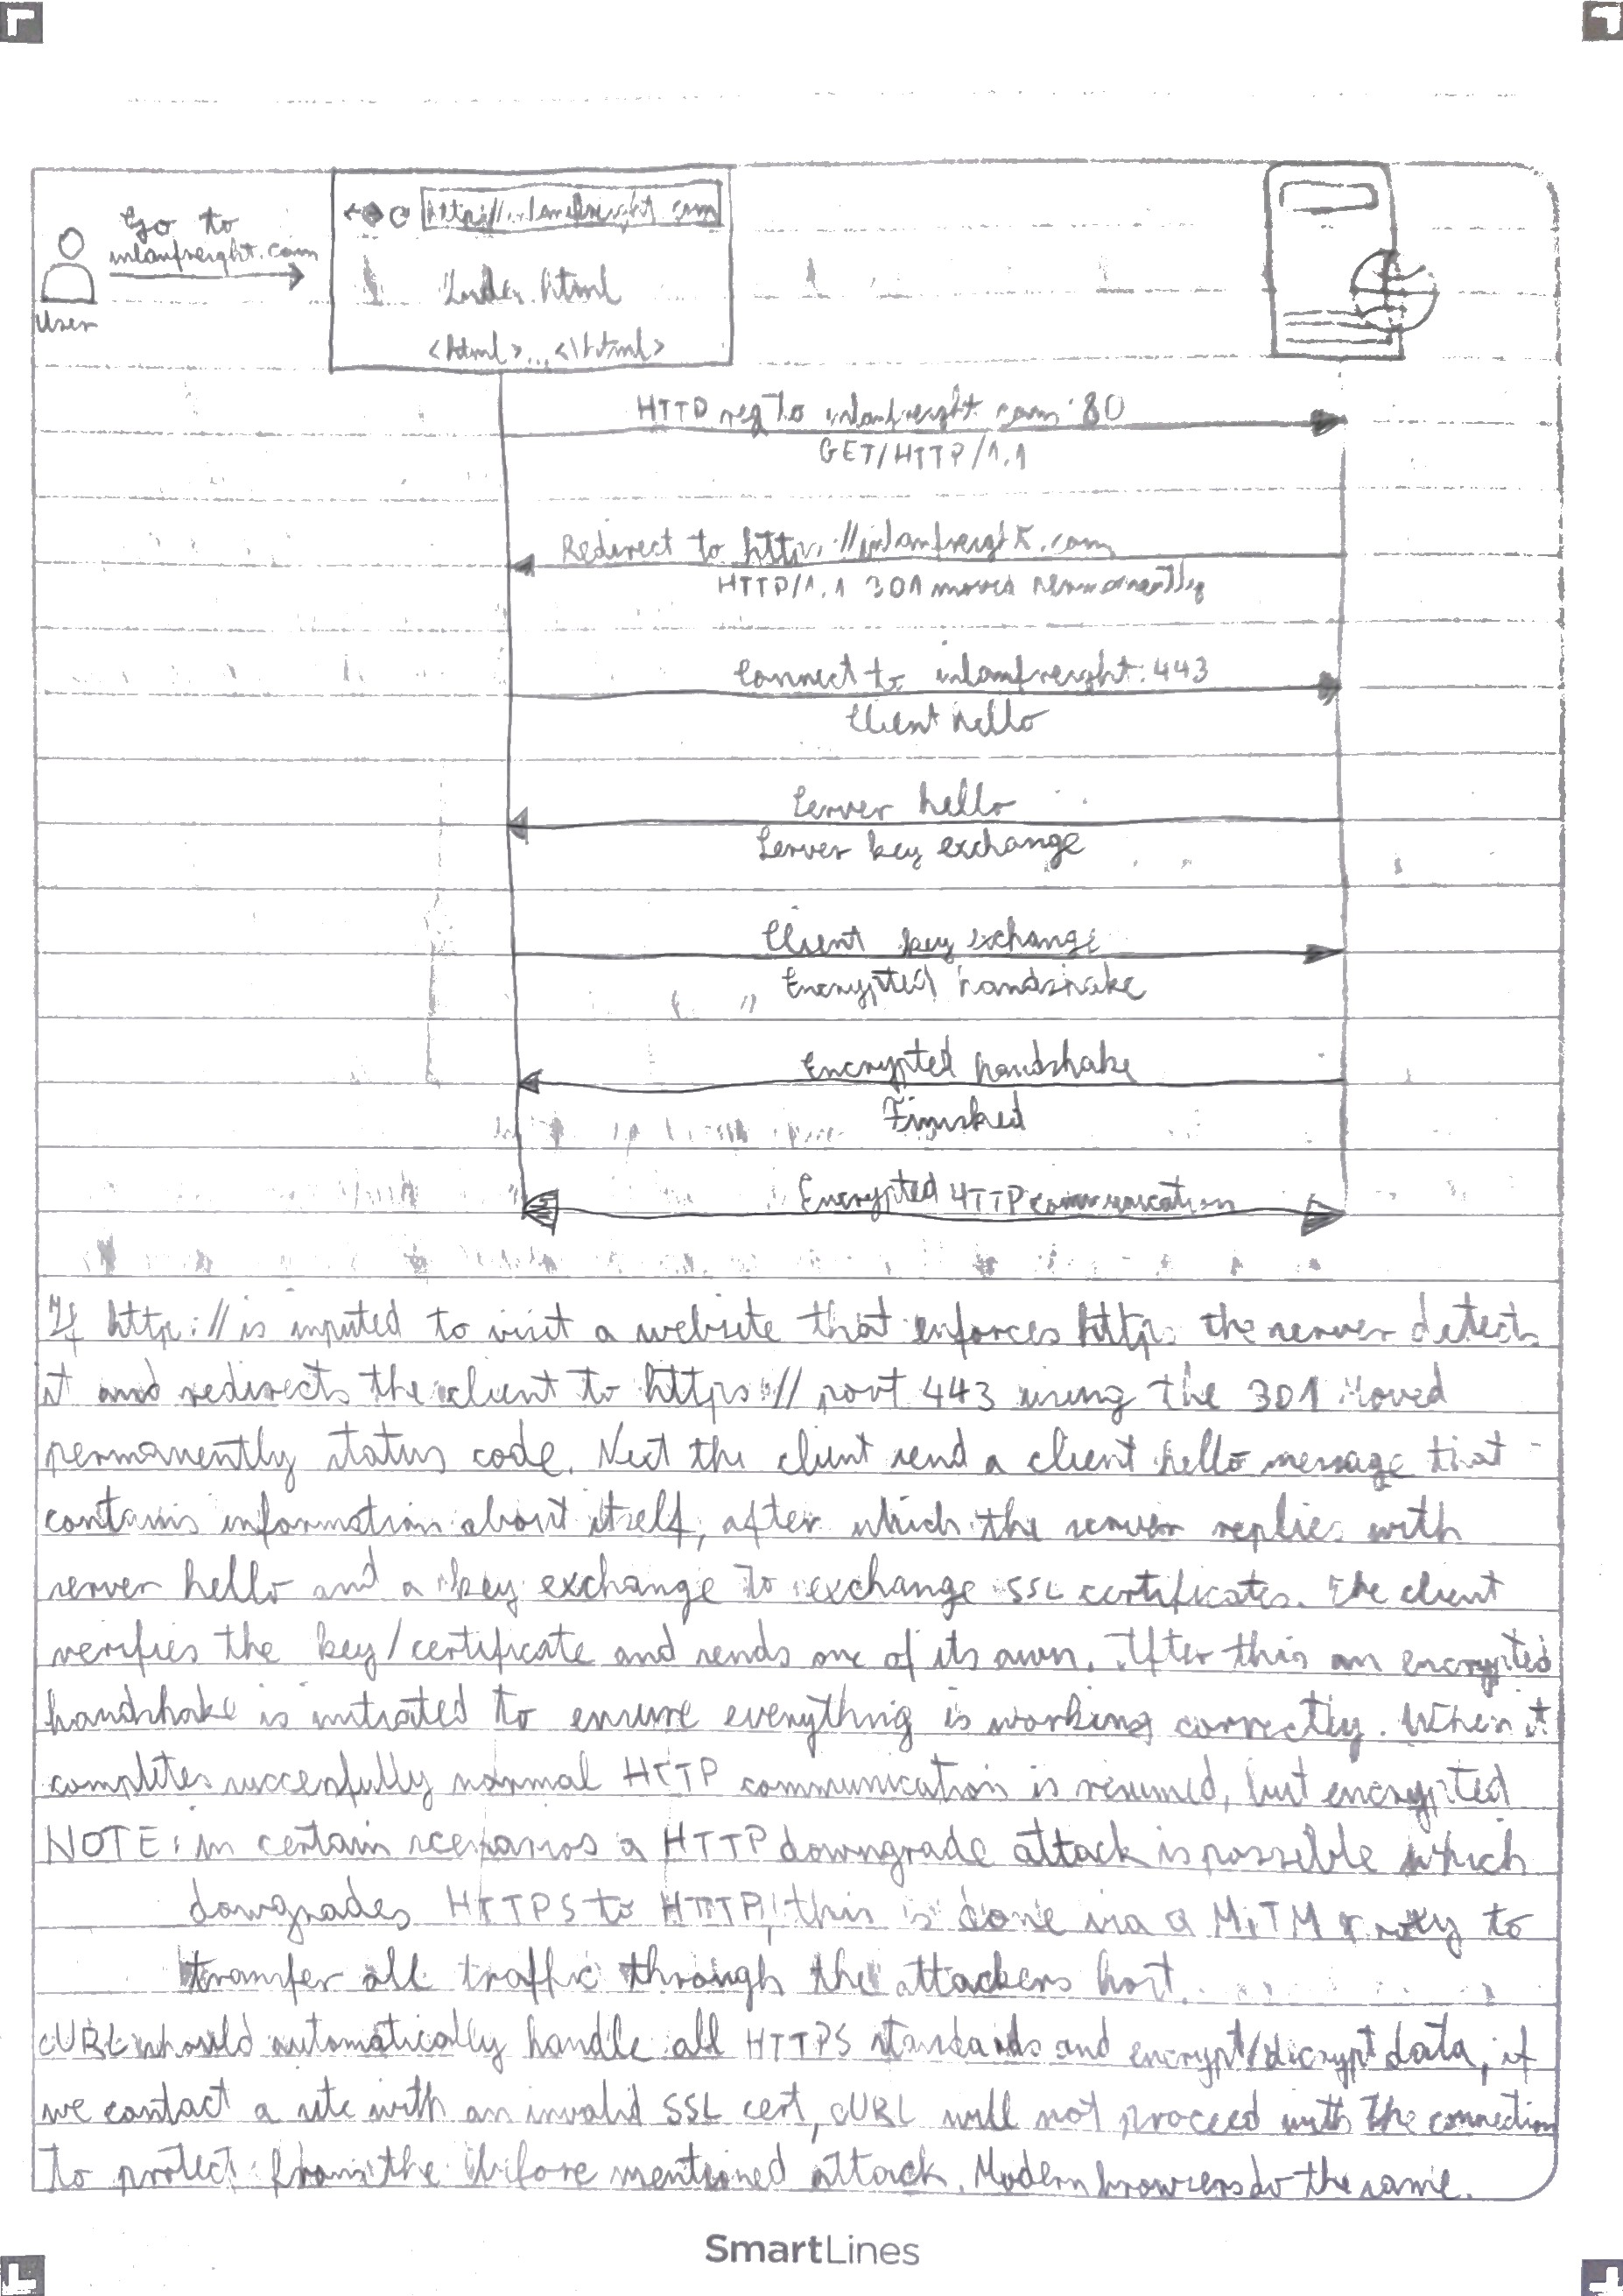 Go to
inlanefreight.com
User
http://inlanefreight.com
Index.html
<html>...<\html>
HTTP req to inlanefreight.com:80
GET/HTTP/1.1
Redirect to https://inlanefreight.com
HTTP/1.1 301 moved permanently
Connect to inlanefreight:443
Client hello
Server hello
Server key exchange
Client key exchange
Encrypted handshake
Encrypted handshake
Finished
Encrypted HTTP communication
If http:// is inputed to visit a website that enforces https the server detects
it and redirects the client to https:// port 443 using the 301 Moved
permanently status code. Next the client send a client hello message that
contains information about itself, after which the server replies with
server hello and a key exchange to exchange SSL certificates. The client
verifies the key/certificate and sends one of its own. After this an encrypted
handshake is initiated to ensure everything is working correctly. When it
completes succesfully normal HTTP communication is resumed, but encrypted
NOTE: in certain scenarios a HTTP downgrade attack is possible which
dowgrades HTTPS to HTTP, this is done via a MiTM proxy to
transfer all traffic through the attackers host.
cURL should automatically handle all HTTPS standards and encrypt/decrypt data, if
we contact a site with an invalid SSL cert, cURL will not proceed with the connection
to protect from the before mentioned attack. Modern browsers do the same.
SmartLines